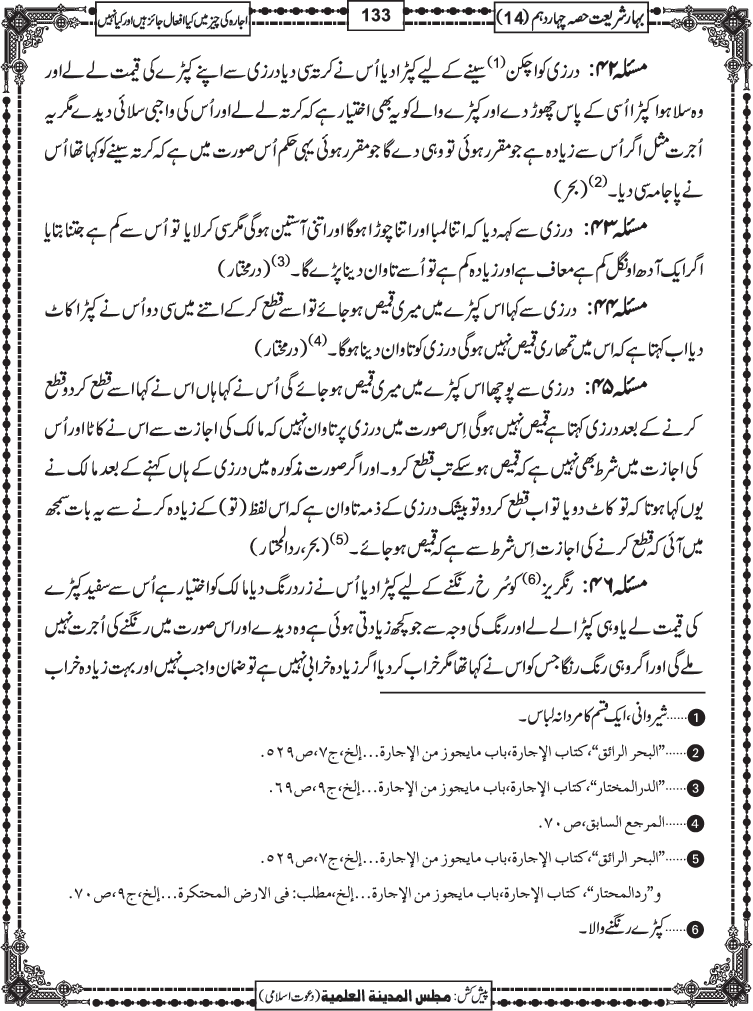 بہار شریعت حصہ چہاردہم (14)
133
اجارہ کی چیز میں کیا افعال جائز ہیں اور کیا نہیں
مسئلہ ۴۲: درزی کو اچکن (1) سینے کے لیے کپڑا دیا اُس نے کرتہ سی دیا درزی سے اپنے کپڑے کی قیمت لے لے اور
وہ سلا ہوا کپڑا اُسی کے پاس چھوڑ دے اور کپڑے والے کو یہ بھی اختیار ہے کہ کرتہ لے لے اور اُس کی واجبی سلائی دیدے مگر یہ
اُجرت مثل اگر اُس سے زیادہ ہے جو مقرر ہوئی تو وہی دے گا جو مقرر ہوئی یہی حکم اُس صورت میں ہے کہ کرتہ سینے کو کہا تھا اُس
نے پاجامہ سی دیا۔ (2) (بحر)
مسئلہ ۴۳: درزی سے کہہ دیا کہ اتنا لمبا اور اتنا چوڑا ہوگا اور اتنی آستین ہوگی مگر سی کر لایا تو اُس سے کم ہے جتنا بتایا
اگر ایک آدھ اونگل کم ہے معاف ہے اور زیادہ کم ہے تو اُسے تاوان دینا پڑے گا۔ (3) (درمختار)
مسئلہ ۴۴: درزی سے کہا اس کپڑے میں میری قمیص ہو جائے تو اسے قطع کرکے اتنے میں سی دو اُس نے کپڑا کاٹ
دیا اب کہتا ہے کہ اس میں تمھاری قمیص نہیں ہوگی درزی کو تاوان دینا ہوگا۔ (4) (درمختار)
مسئلہ ۴۵: درزی سے پوچھا اس کپڑے میں میری قمیص ہو جائے گی اُس نے کہا ہاں اس نے کہا اسے قطع کردو قطع
کرنے کے بعد درزی کہتا ہے قمیص نہیں ہوگی اِس صورت میں درزی پر تاوان نہیں کہ مالک کی اجازت سے اس نے کاٹا اور اُس
کی اجازت میں شرط بھی نہیں ہے کہ قمیص ہو سکے تب قطع کرو۔ اور اگر صورت مذکورہ میں درزی کے ہاں کہنے کے بعد مالک نے
یوں کہا ہوتا کہ تو کاٹ دو یا تو اب قطع کردو تو بیشک درزی کے ذمہ تاوان ہے کہ اس لفظ (تو) کے زیادہ کرنے سے یہ بات سمجھ
میں آئی کہ قطع کرنے کی اجازت اِس شرط سے ہے کہ قمیص ہو جائے۔ (5) (بحر، ردالمحتار)
مسئلہ ۴۶: رنگریز (6) کو سُرخ رنگنے کے لیے کپڑا دیا اُس نے زرد رنگ دیا مالک کو اختیار ہے اُس سے سفید کپڑے
کی قیمت لے یا وہی کپڑا لے لے اور رنگ کی وجہ سے جو کچھ زیادتی ہوئی ہے وہ دیدے اور اس صورت میں رنگنے کی اُجرت نہیں
ملے گی اور اگر وہی رنگ رنگا جس کو اس نے کہا تھا مگر خراب کر دیا اگر زیادہ خرابی نہیں ہے تو ضمان واجب نہیں اور بہت زیادہ خراب
1 ......شیروانی، ایک قسم کا مردانہ لباس۔
2 ......”البحر الرائق“، کتاب الإجارة، باب مایجوز من الإجارة...إلخ، ج٧، ص٥٢٩.
3 ......”الدرالمختار“، کتاب الإجارة، باب مایجوز من الإجارة...إلخ، ج٩، ص٦٩.
4 ......المرجع السابق، ص٧٠.
5 ......”البحر الرائق“، کتاب الإجارة، باب مایجوز من الإجارة...إلخ، ج٧، ص٥٢٩.
و”ردالمحتار“، کتاب الإجارة، باب مایجوز من الإجارة...إلخ، مطلب: فی الارض المحتكرة...إلخ، ج٩، ص٧٠.
6 ......کپڑے رنگنے والا۔
پیش کش: مجلس المدینة العلمیة (دعوت اسلامی)